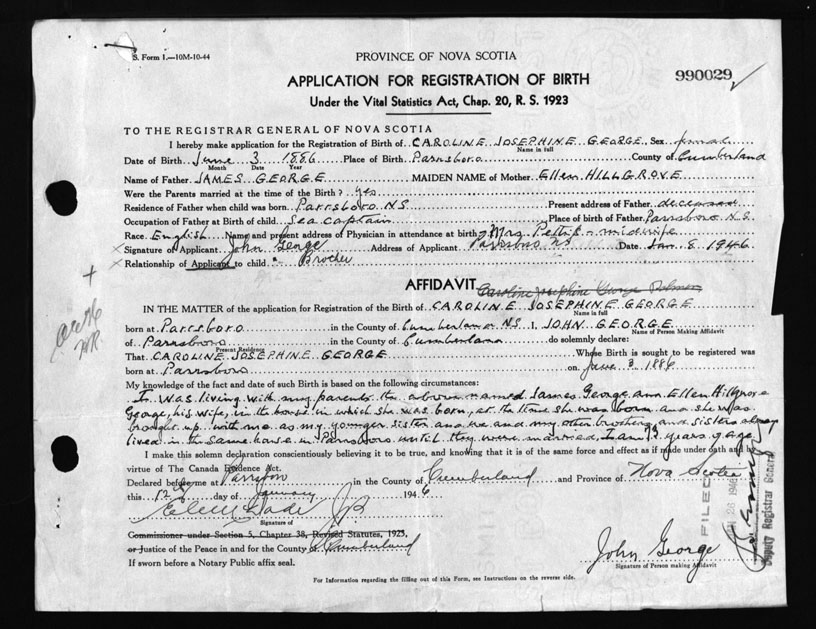 S. Form 1.—10M-10-44
PROVINCE OF NOVA SCOTIA
990029
APPLICATION FOR REGISTRATION OF BIRTH
Under the Vital Statistics Act, Chap. 20, R. S. 1923
TO THE REGISTRAR GENERAL OF NOVA SCOTIA
I hereby make application for the Registration of Birth of CAROLINE JOSEPHINE GEORGE Sex female
Name in full
Date of Birth June 3 1886 Place of Birth Parrsboro County of Cumberland
Month Date Year
Name of Father JAMES GEORGE MAIDEN NAME of Mother Ellen HILLGROVE
Were the Parents married at the time of the Birth? yes
Residence of Father when child was born Parrsboro NS Present address of Father deceased
Occupation of Father at Birth of child Sea captain Place of birth of Father Parrsboro N.S
Race English Name and present address of Physician in attendance at birth Mrs. midwife
Signature of Applicant John George Address of Applicant Parrsboro NS Date Jan. 8 1946
Relationship of Applicant to child Brother
AFFIDAVIT Caroline Josephine George
IN THE MATTER of the application for Registration of the Birth of CAROLINE JOSEPHINE GEORGE
Name in full
born at Parrsboro in the County of Cumberland NS I, JOHN GEORGE
Name of Person Making Affidavit
of Parrsboro in the County of Cumberland do solemnly declare:
Present Residence
That CAROLINE JOSEPHINE GEORGE Whose Birth is sought to be registered was
born at Parrsboro on June 3 1886
My knowledge of the fact and date of such Birth is based on the following circumstances:
I was living with my parents the above named James George and Ellen Hillgrove
George, his wife, in the house in which she was born, at the time she was born and she was
brought up with me as my younger sister and we and my other brothers and sisters
lived in the same house in Parrsboro until they were married, I am years of age
I make this solemn declaration conscientiously believing it to be true, and knowing that it is of the same force and effect as if made under oath and by
virtue of The Canada Evidence Act.
Declared before me at in the County of Cumberland and Province of Nova Scotia
this 12 day of January 1946
Signature of
Commissioner under Section 5, Chapter 38, Revised Statutes, 1923,
or Justice of the Peace in and for the County of Cumberland
If sworn before a Notary Public affix seal.
John George
Signature of Person making Affidavit
For Information regarding the filling out of this Form, see Instructions on the reverse side.
FILED
26 1946
Deputy Registrar General